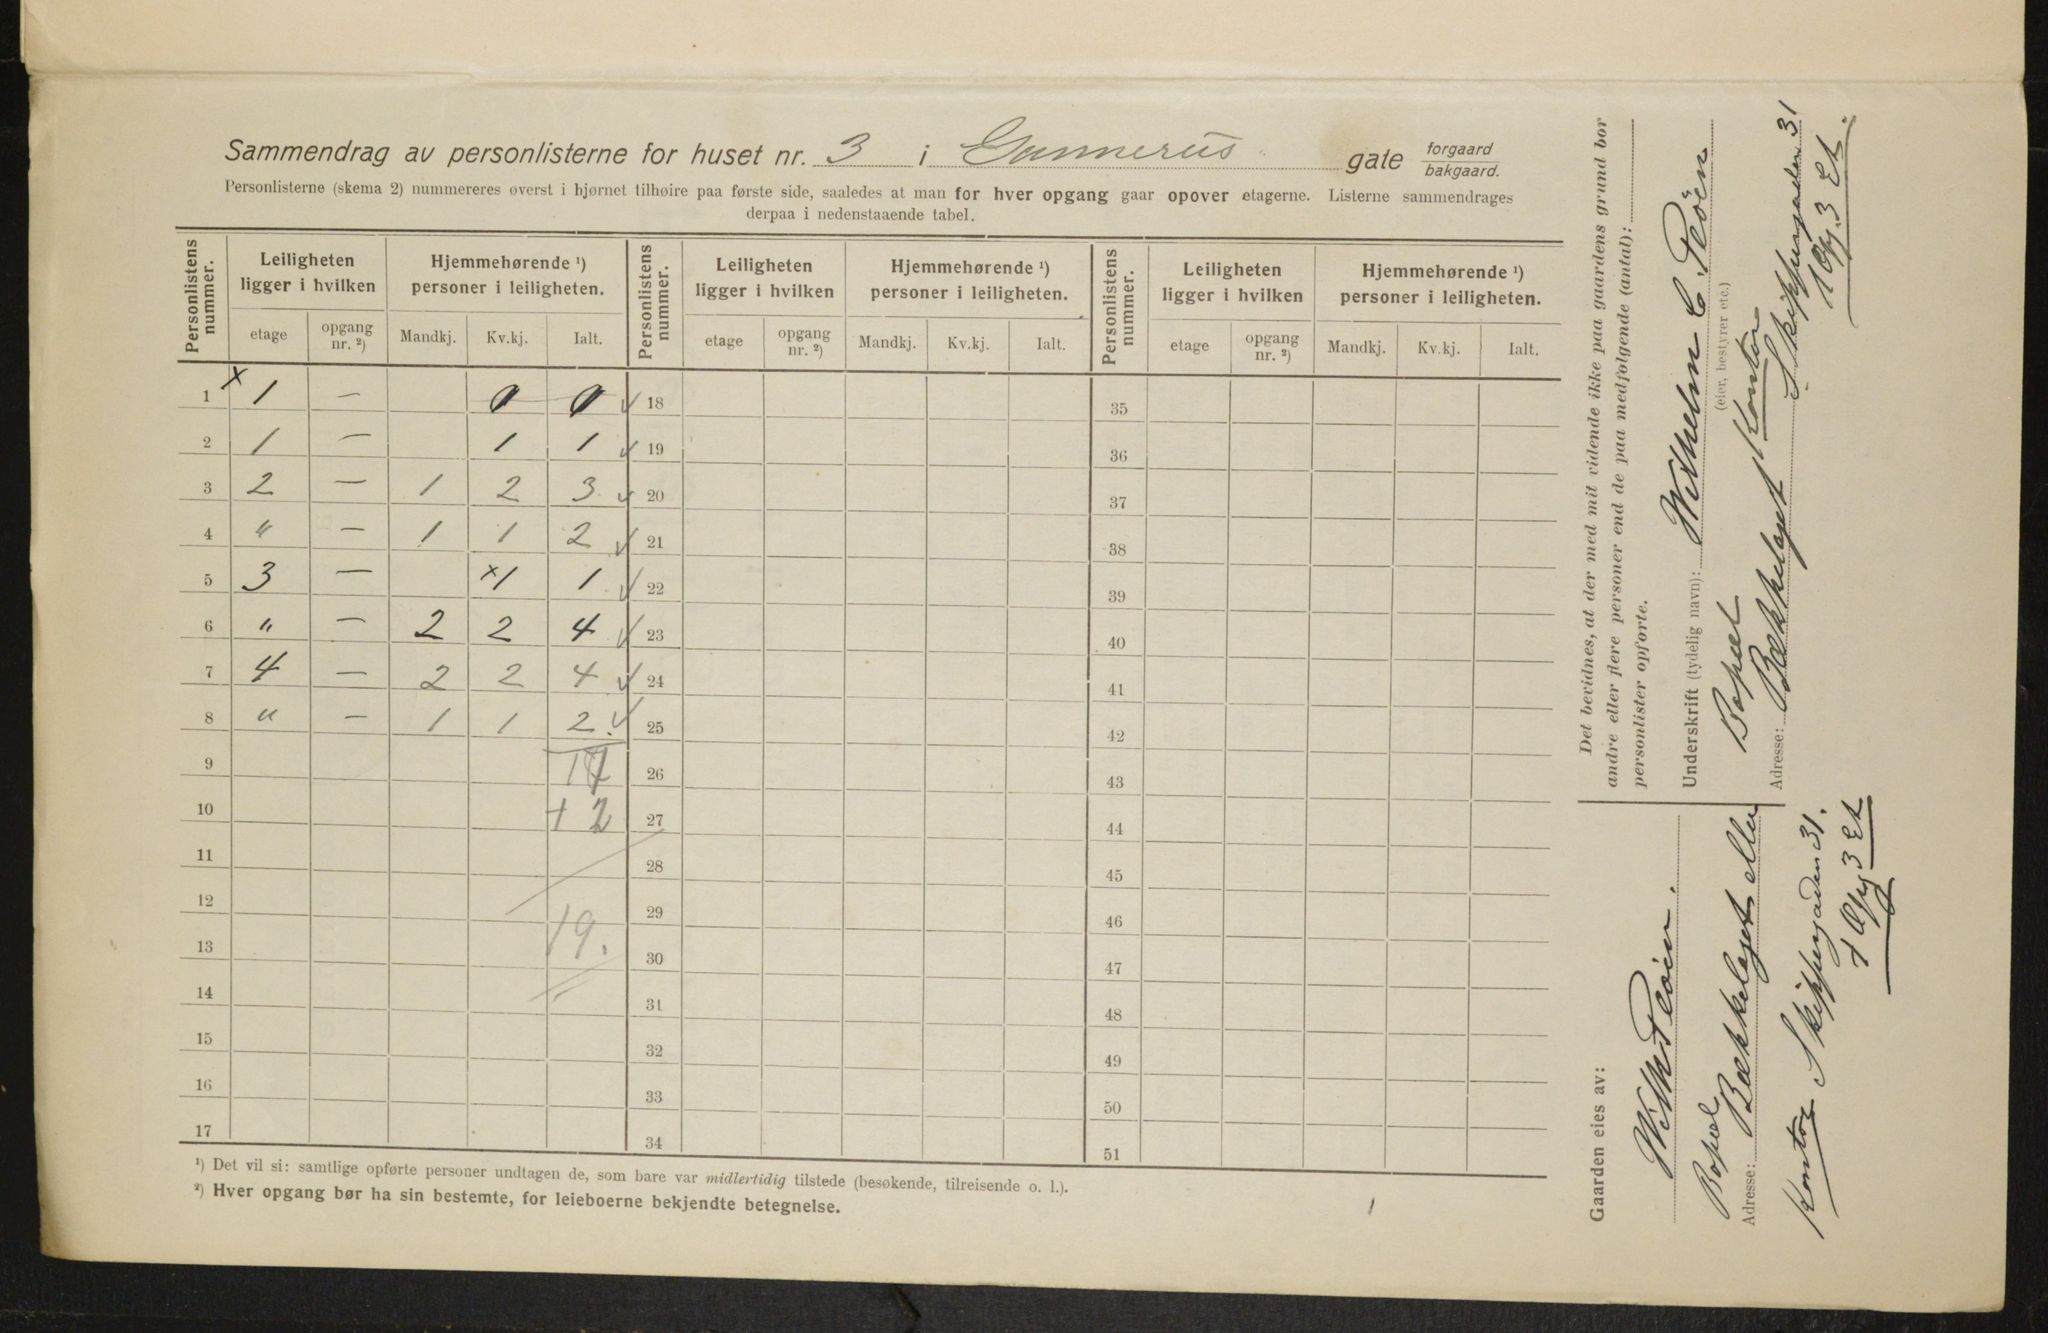 Sammendrag av personlisterne for huset nr. 3 i Gunnerus gate forgaard bakgaard.
Personlisterne (skema 2) nummereres øverst i hjørnet tilhøire paa første side, saaledes at man for hver opgang gaar opover etagerne. Listerne sammendrages
derpaa i nedenstaaende tabel.
Personlistens nummer. Leiligheten ligger i hvilken Hjemmehørende ¹) personer i leiligheten. Personlistens nummer. Leiligheten ligger i hvilken Hjemmehørende ¹) personer i leiligheten. Personlistens nummer. Leiligheten ligger i hvilken Hjemmehørende ¹) personer i leiligheten.
etage opgang nr. ²) Mandkj. Kv.kj. Ialt. etage opgang nr. ²) Mandkj. Kv.kj. Ialt. etage opgang nr. ²) Mandkj. Kv.kj. Ialt.
1 x 1 — 0 0 √ 18 35
2 1 — 1 1 √ 19 36
3 2 — 1 2 3 √ 20 37
4 " — 1 1 2 √ 21 38
5 3 — x1 1 √ 22 39
6 " — 2 2 4 √ 23 40
7 4 — 2 2 4 √ 24 41
8 " — 1 1 2. √ 25 42
9 17 26 43
10 + 2 27 44
11 28 45
12 19. 29 46
13 30 47
14 31 48
15 32 49
16 33 50
17 34 51
¹) Det vil si: samtlige opførte personer undtagen de, som bare var midlertidig tilstede (besøkende, tilreisende o. l.).
²) Hver opgang bør ha sin bestemte, for leieboerne bekjendte betegnelse.
1
Det bevidnes, at der med mit vidende ikke paa gaardens grund bor
andre eller flere personer end de paa medfølgende (antal):
personlister opførte.
Underskrift (tydelig navn): Wilhelm C. Pløen
(eier, bestyrer etc.)
Bopæl Kontor
Adresse: Bækkelaget Skippergaden 31
1 Opg. 3 Et.
Gaarden eies av:
Wilh Pløen.
Bopæl
Adresse: Bækkelaget eller
Kontor Skippergaden 31.
1 Opg 3 Et